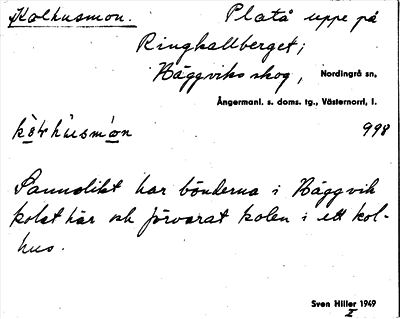 Kolhusmon. Platå uppe på
Ringkallberget;
Häggviks skog, Nordingrå sn,
Ångermanl. s. doms. tg., Västernorrl. l.
998
Sannolikt har bönderna i Häggvik
kolat här och förvarat kolen i ett kol-
hus.
Sven Hiller 1949
I